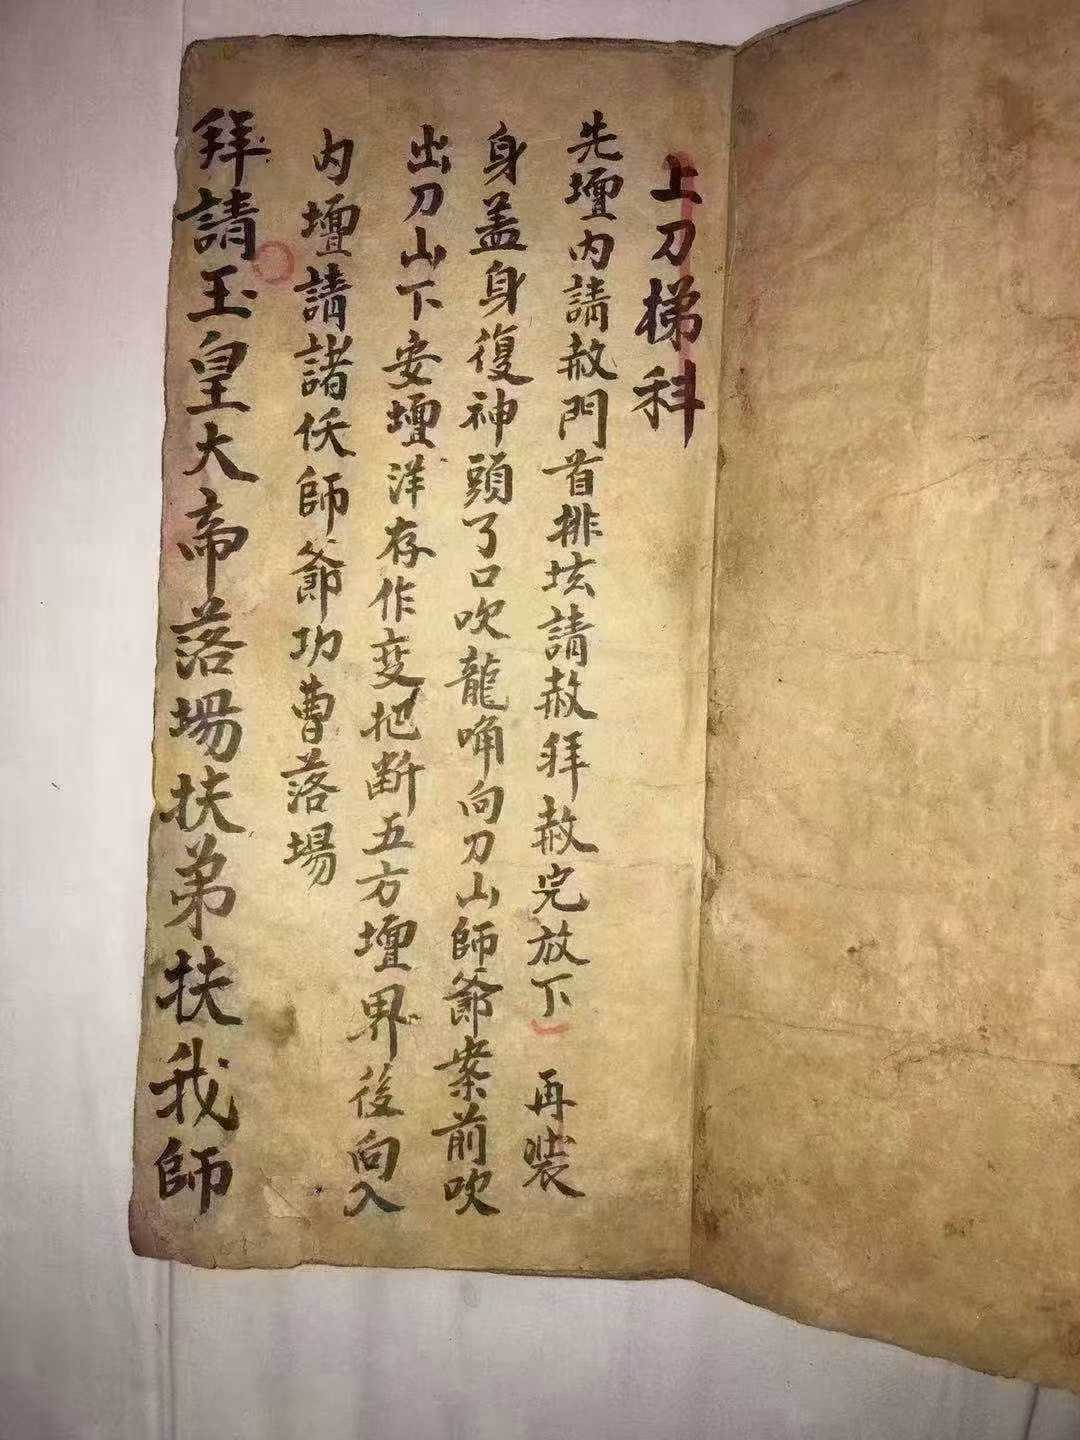 上刀梯科
先壇内請赦門首排坛請赦拜赦完放下 再裝
身盖身復神頭了口吹龍角向刀山師爺案前吹
出刀山下安壇洋存作变把断五方壇界後向入
内壇請諸伕師爺功曹落場
拜請玉皇大帝落場扶弟扶我師